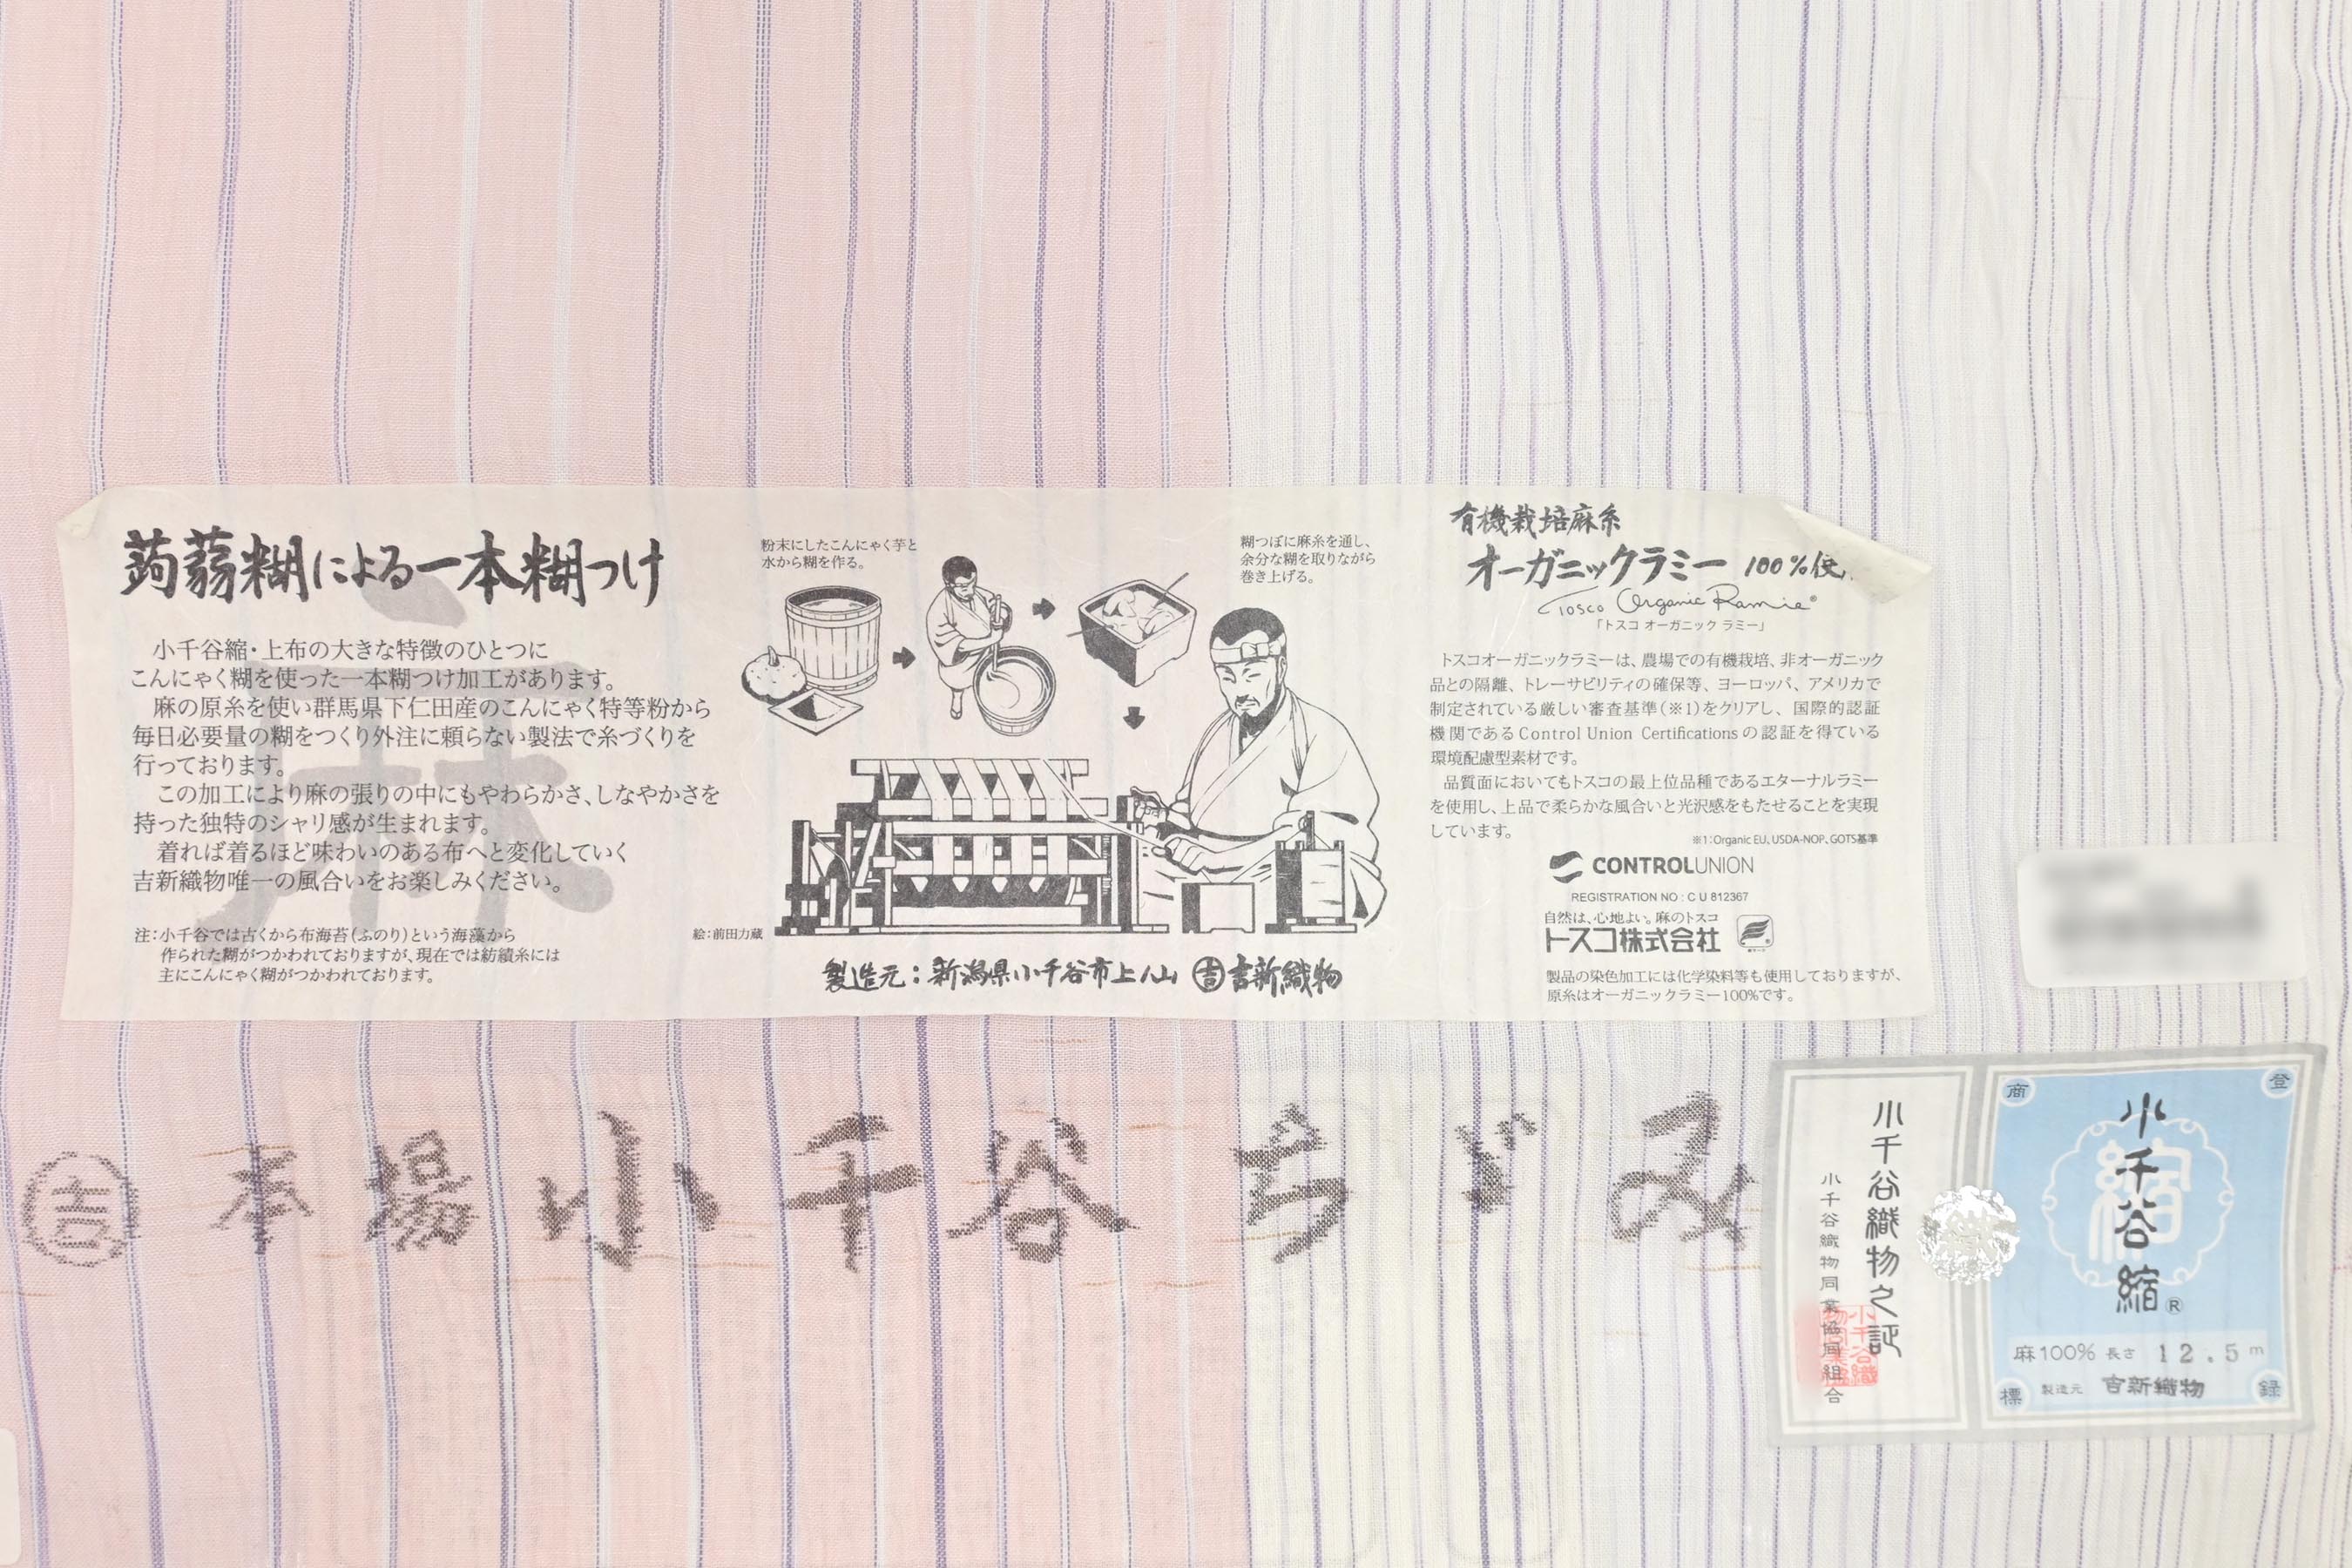 蒟蒻糊による一本糊つけ
小千谷縮・上布の大きな特徴のひとつに
こんにゃく糊を使った一本糊つけ加工があります。
麻の原糸を使い群馬県下仁田産のこんにゃく特等粉から
毎日必要量の糊をつくり外注に頼らない製法で糸づくりを
行っております。
この加工により麻の張りの中にもやわらかさ、しなやかさを
持った独特のシャリ感が生まれます。
着れば着るほど味わいのある布へと変化していく
吉新織物唯一の風合いをお楽しみください。
注:小千谷では古くから布海苔(ふのり)という海藻から
作られた糊がつかわれておりますが、現在では紡績糸には
主にこんにゃく糊がつかわれております。
麻
粉末にしたこんにゃく芋と
水から糊を作る。
糊つぼに麻糸を通し、
余分な糊を取りながら
巻き上げる。
絵:前田力蔵
製造元:新潟県小千谷市上ノ山 吉 吉新織物
有機栽培麻糸
オーガニックラミー 100%使
Tosco Organic Ramie®
「トスコ オーガニック ラミー」
トスコオーガニックラミーは、農場での有機栽培、非オーガニック
品との隔離、トレーサビリティの確保等、ヨーロッパ、アメリカで
制定されている厳しい審査基準(※1)をクリアし、国際的認証
機関であるControl Union Certificationsの認証を得ている
環境配慮型素材です。
品質面においてもトスコの最上位品種であるエターナルラミー
を使用し、上品で柔らかな風合いと光沢感をもたせることを実現
しています。
※1:Organic EU、USDA-NOP、GOTS基準
CONTROLUNION
REGISTRATION NO : C U 812367
自然は、心地よい。麻のトスコ
トスコ株式会社
製品の染色加工には化学染料等も使用しておりますが、
原糸はオーガニックラミー100%です。
吉 本場小千谷ちぢみ
小千谷織物之証
小千谷織物同業協同組合
登録商標
縮
小千谷縮®
麻100% 長さ 12.5m
製造元 吉新織物